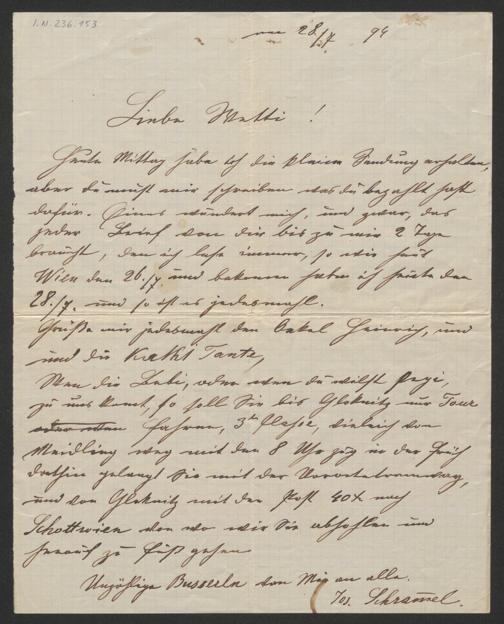 I.N. 236.153
am 28/7 94
Liebe Wetti!
Heute Mittag habe ich die kleine Sendung erhalten,
aber du mußt mir schreiben was du bezahlt hast
dafür. Eines wundert mich, und zwar, das
jeder Brief von dir bis zu mir 2 Tage
braucht, den ich lese immer, so wie
Wien den 26./7 und bekomen habe ich heute den
28./7. und so ist es jedesmahl.
Grüße mir jedesmahl den Onkel Heinrich, und
und die Kathi Tante,
Wen die Betti, oder wen du wilst Pepi,
zu uns komt, so soll Sie bis Gloknitz nur Tour
oder wen fahren, 3te Classe, vieleich von
Meidling weg mit den 8 Uhr zug in der früh
dorthin gelangt Sie mit der Vorortetramway,
und von Gloknitz mit der Post 40x nach
Schottwien von wo wir Sie abhohlen und
herauf zu fuß gehen
Unzählige Busserln von Mir an alle.
Jos. Schrammel.